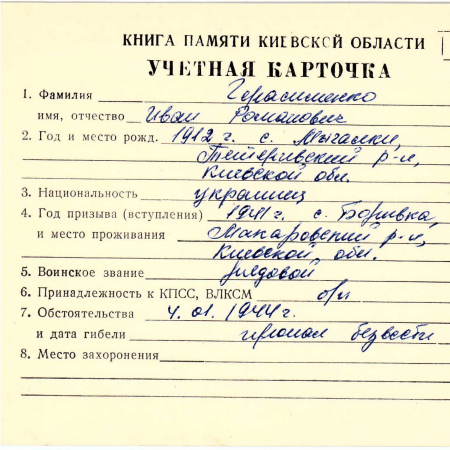 КНИГА ПАМЯТИ КИЕВСКОЙ ОБЛАСТИ
УЧЕТНАЯ КАРТОЧКА
1. Фамилия Герасименко
имя, отчество Иван Романович
2. Год и место рожд. 1912 г. с. Мигалки,
Тетеривский р-н,
Киевской обл.
3. Национальность украинец
4. Год призыва (вступления) 1941 г. с.
и место проживания Макаровский р-н,
Киевской обл.
5. Воинское звание рядовой
6. Принадлежность к КПСС, ВЛКСМ б/п
7. Обстоятельства 4.01.1944 г.
и дата гибели пропал безвести
8. Место захоронения